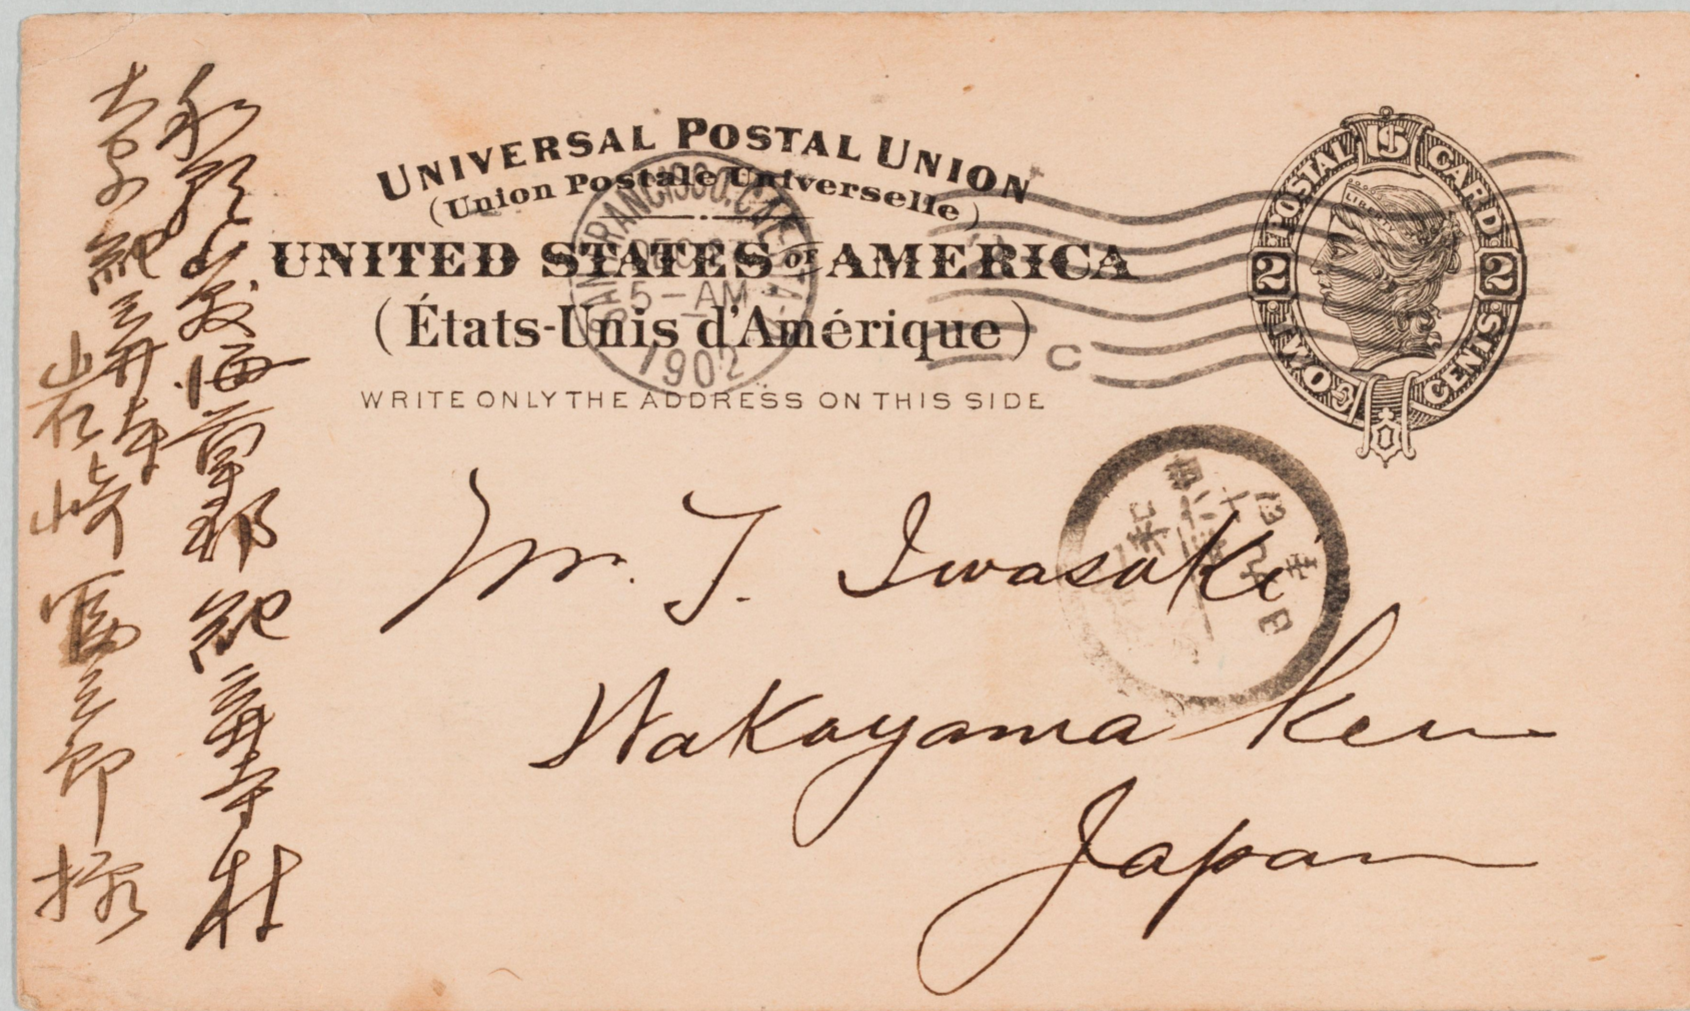 UNIVERSAL POSTAL UNION
(Union Postale Universelle)
UNITED STATES OF AMERICA
(États-Unis d'Amérique)
WRITE ONLY THE ADDRESS ON THIS SIDE
SAN FRANCISCO, CAL.
5-AM
1902
C
POSTAL CARD
U S
2 2
TWO CENTS
LIBERTY
Mr. T. Iwasaki
Wakayama Ken
Japan
和歌山縣海草郡紀三井寺村
大字紀三井寺
岩崎冨三郎様